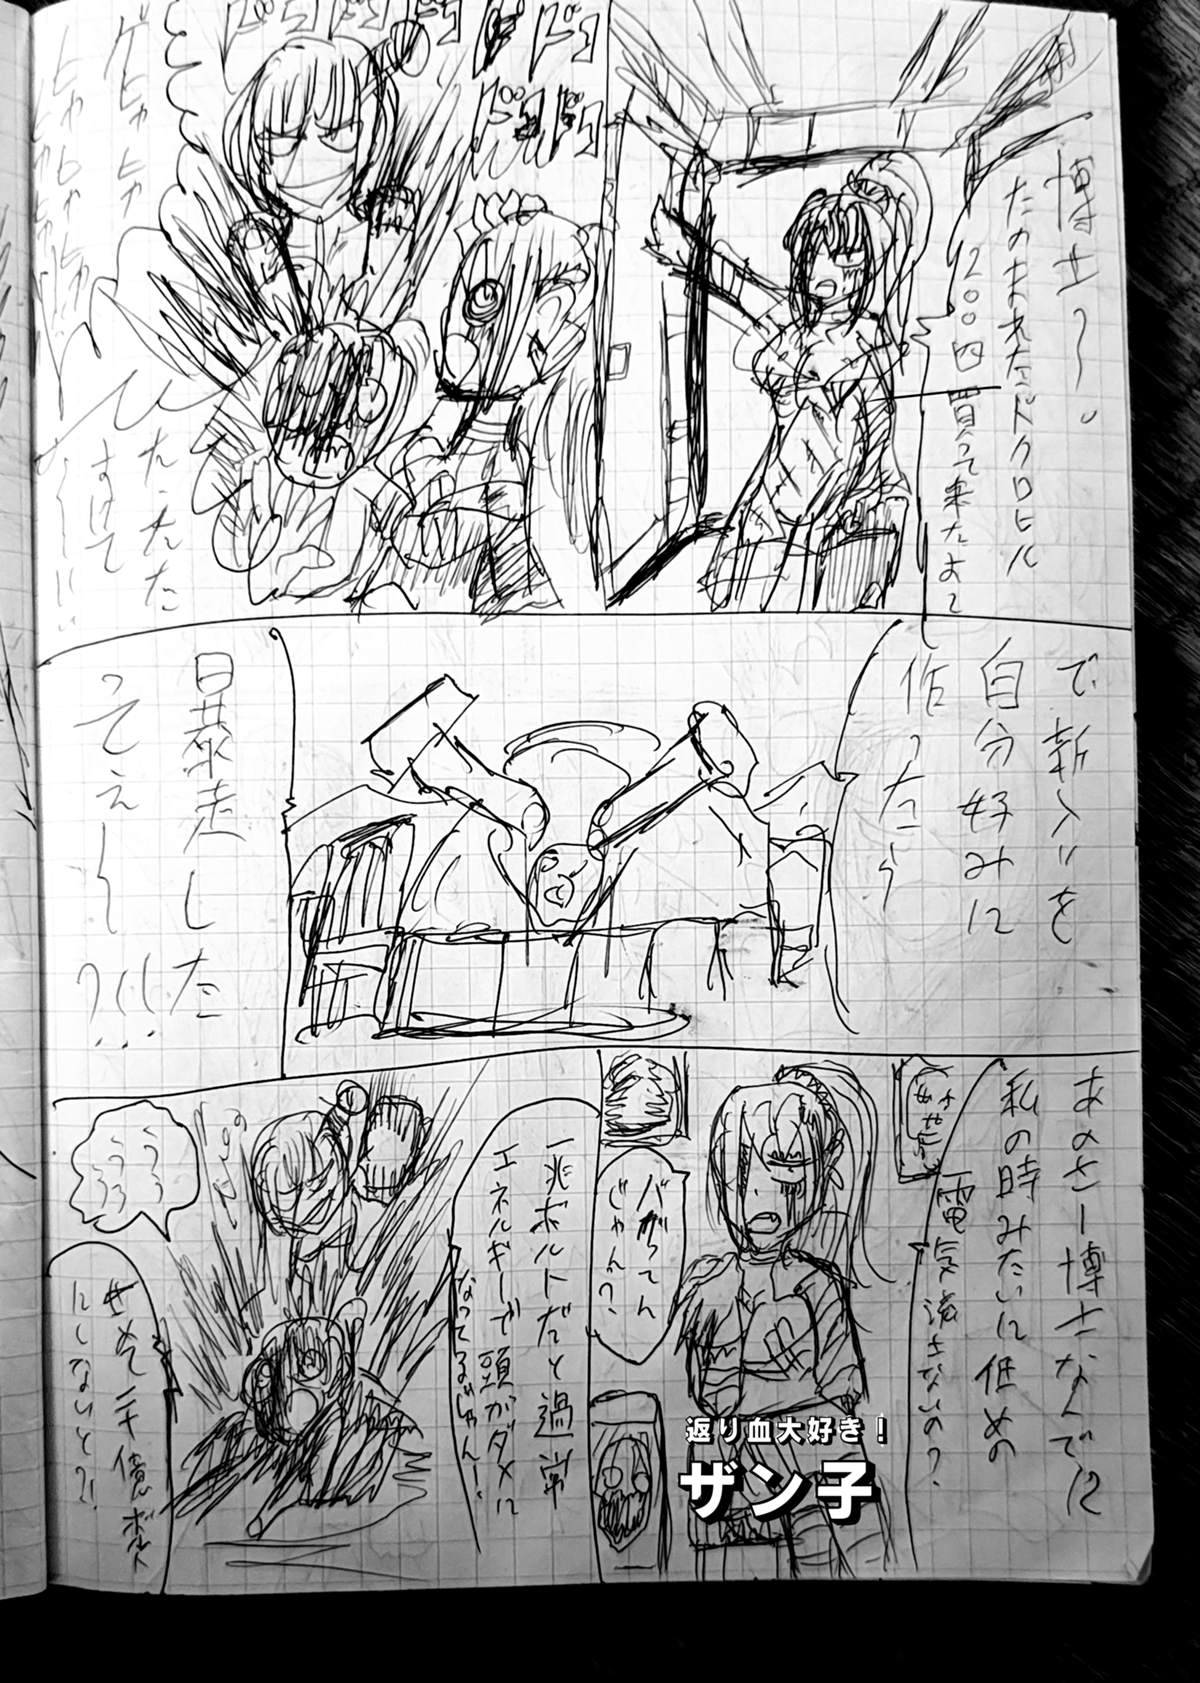 博士〜。
たのまれたドクロヒル
200回買って来たよて
ドドドドド
ドドド
ゲヒャヒャ
ヒャヒャヒャ
たたた
すけて
で新入りを
自分好みに
作ったら
暴走した
ってぇ〜?!!
あのさー博士なんでに
私の時みたいに低めの
電気流さないの?
バグってん
じゃん?
一兆ボルトだと過常
エネルギーで頭がダメに
なってるじゃん!
うう
うう
うう
せめて二千億ボルト
にしないと?!
返り血大好き!
ザン子